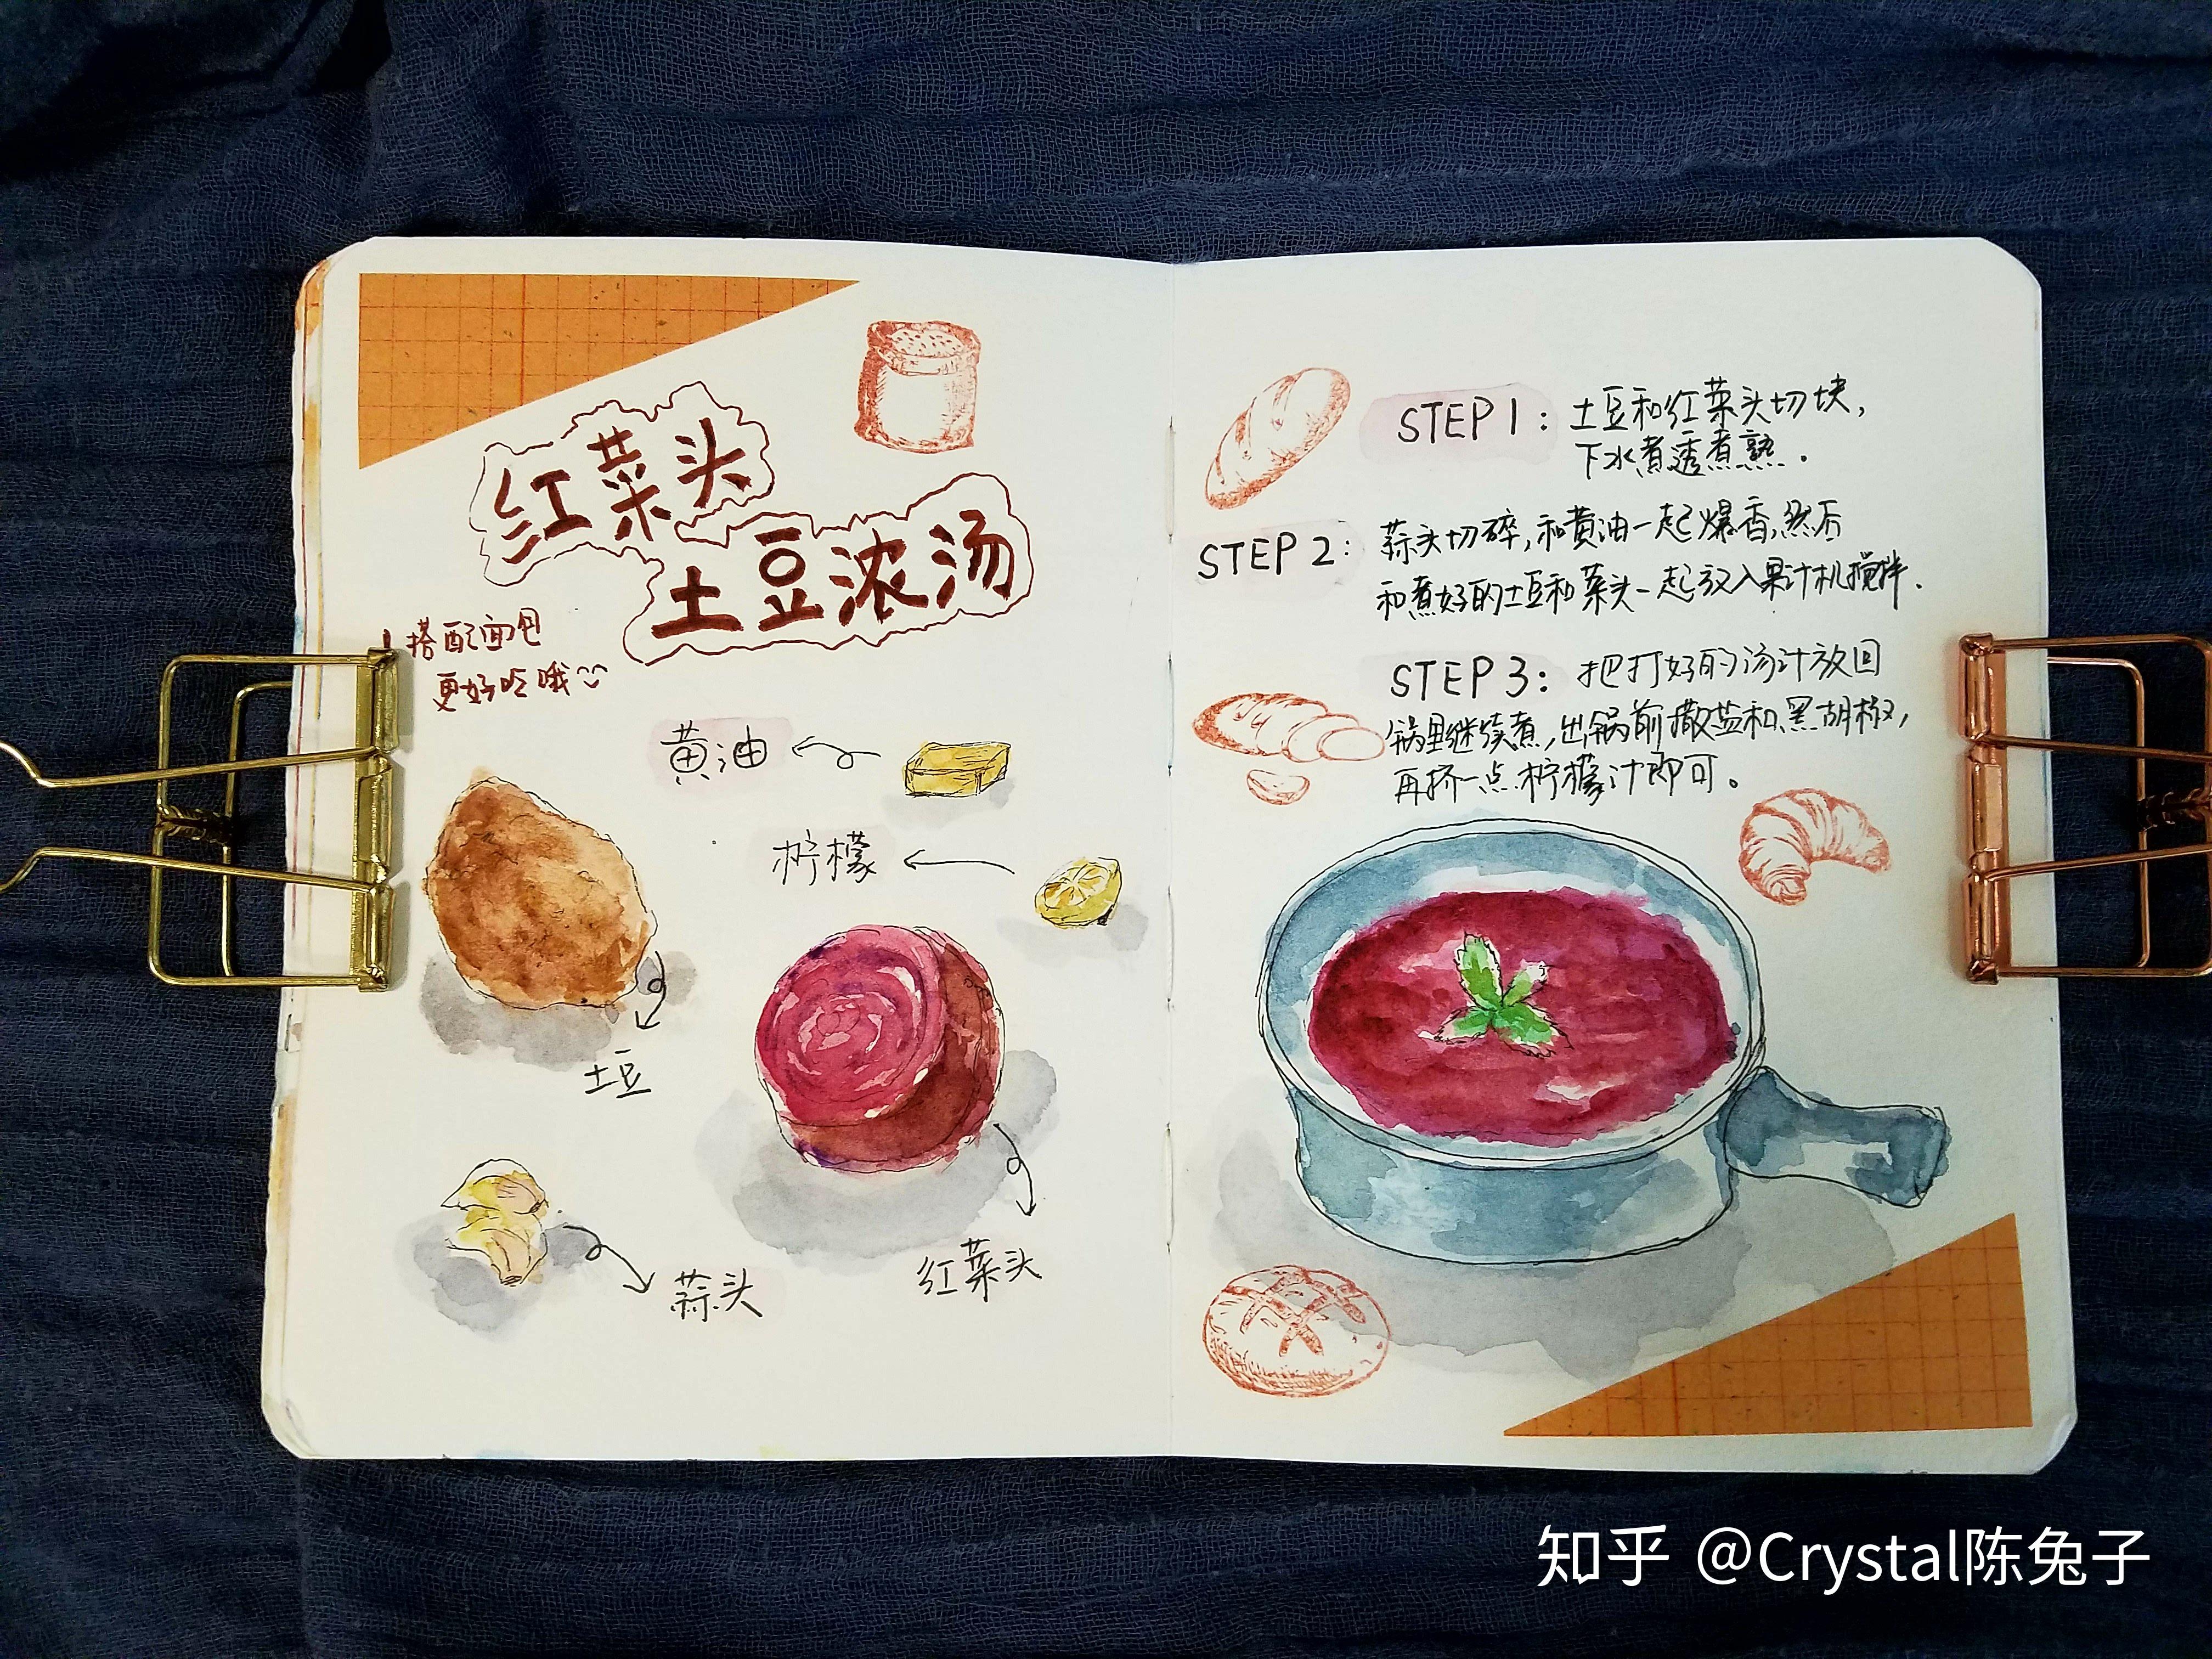 红菜头
土豆浓汤
搭配面包
更好吃哦
黄油
柠檬
土豆
红菜头
蒜头
STEP 1: 土豆和红菜头切块,
下水煮透煮熟.
STEP 2: 蒜头切碎,和黄油一起爆香,然后
和煮好的土豆和菜头一起放入果汁机搅拌.
STEP 3: 把打好的汤汁放回
锅里继续煮,出锅前撒盐和黑胡椒,
再挤一点柠檬汁即可。
知乎 @Crystal陈兔子